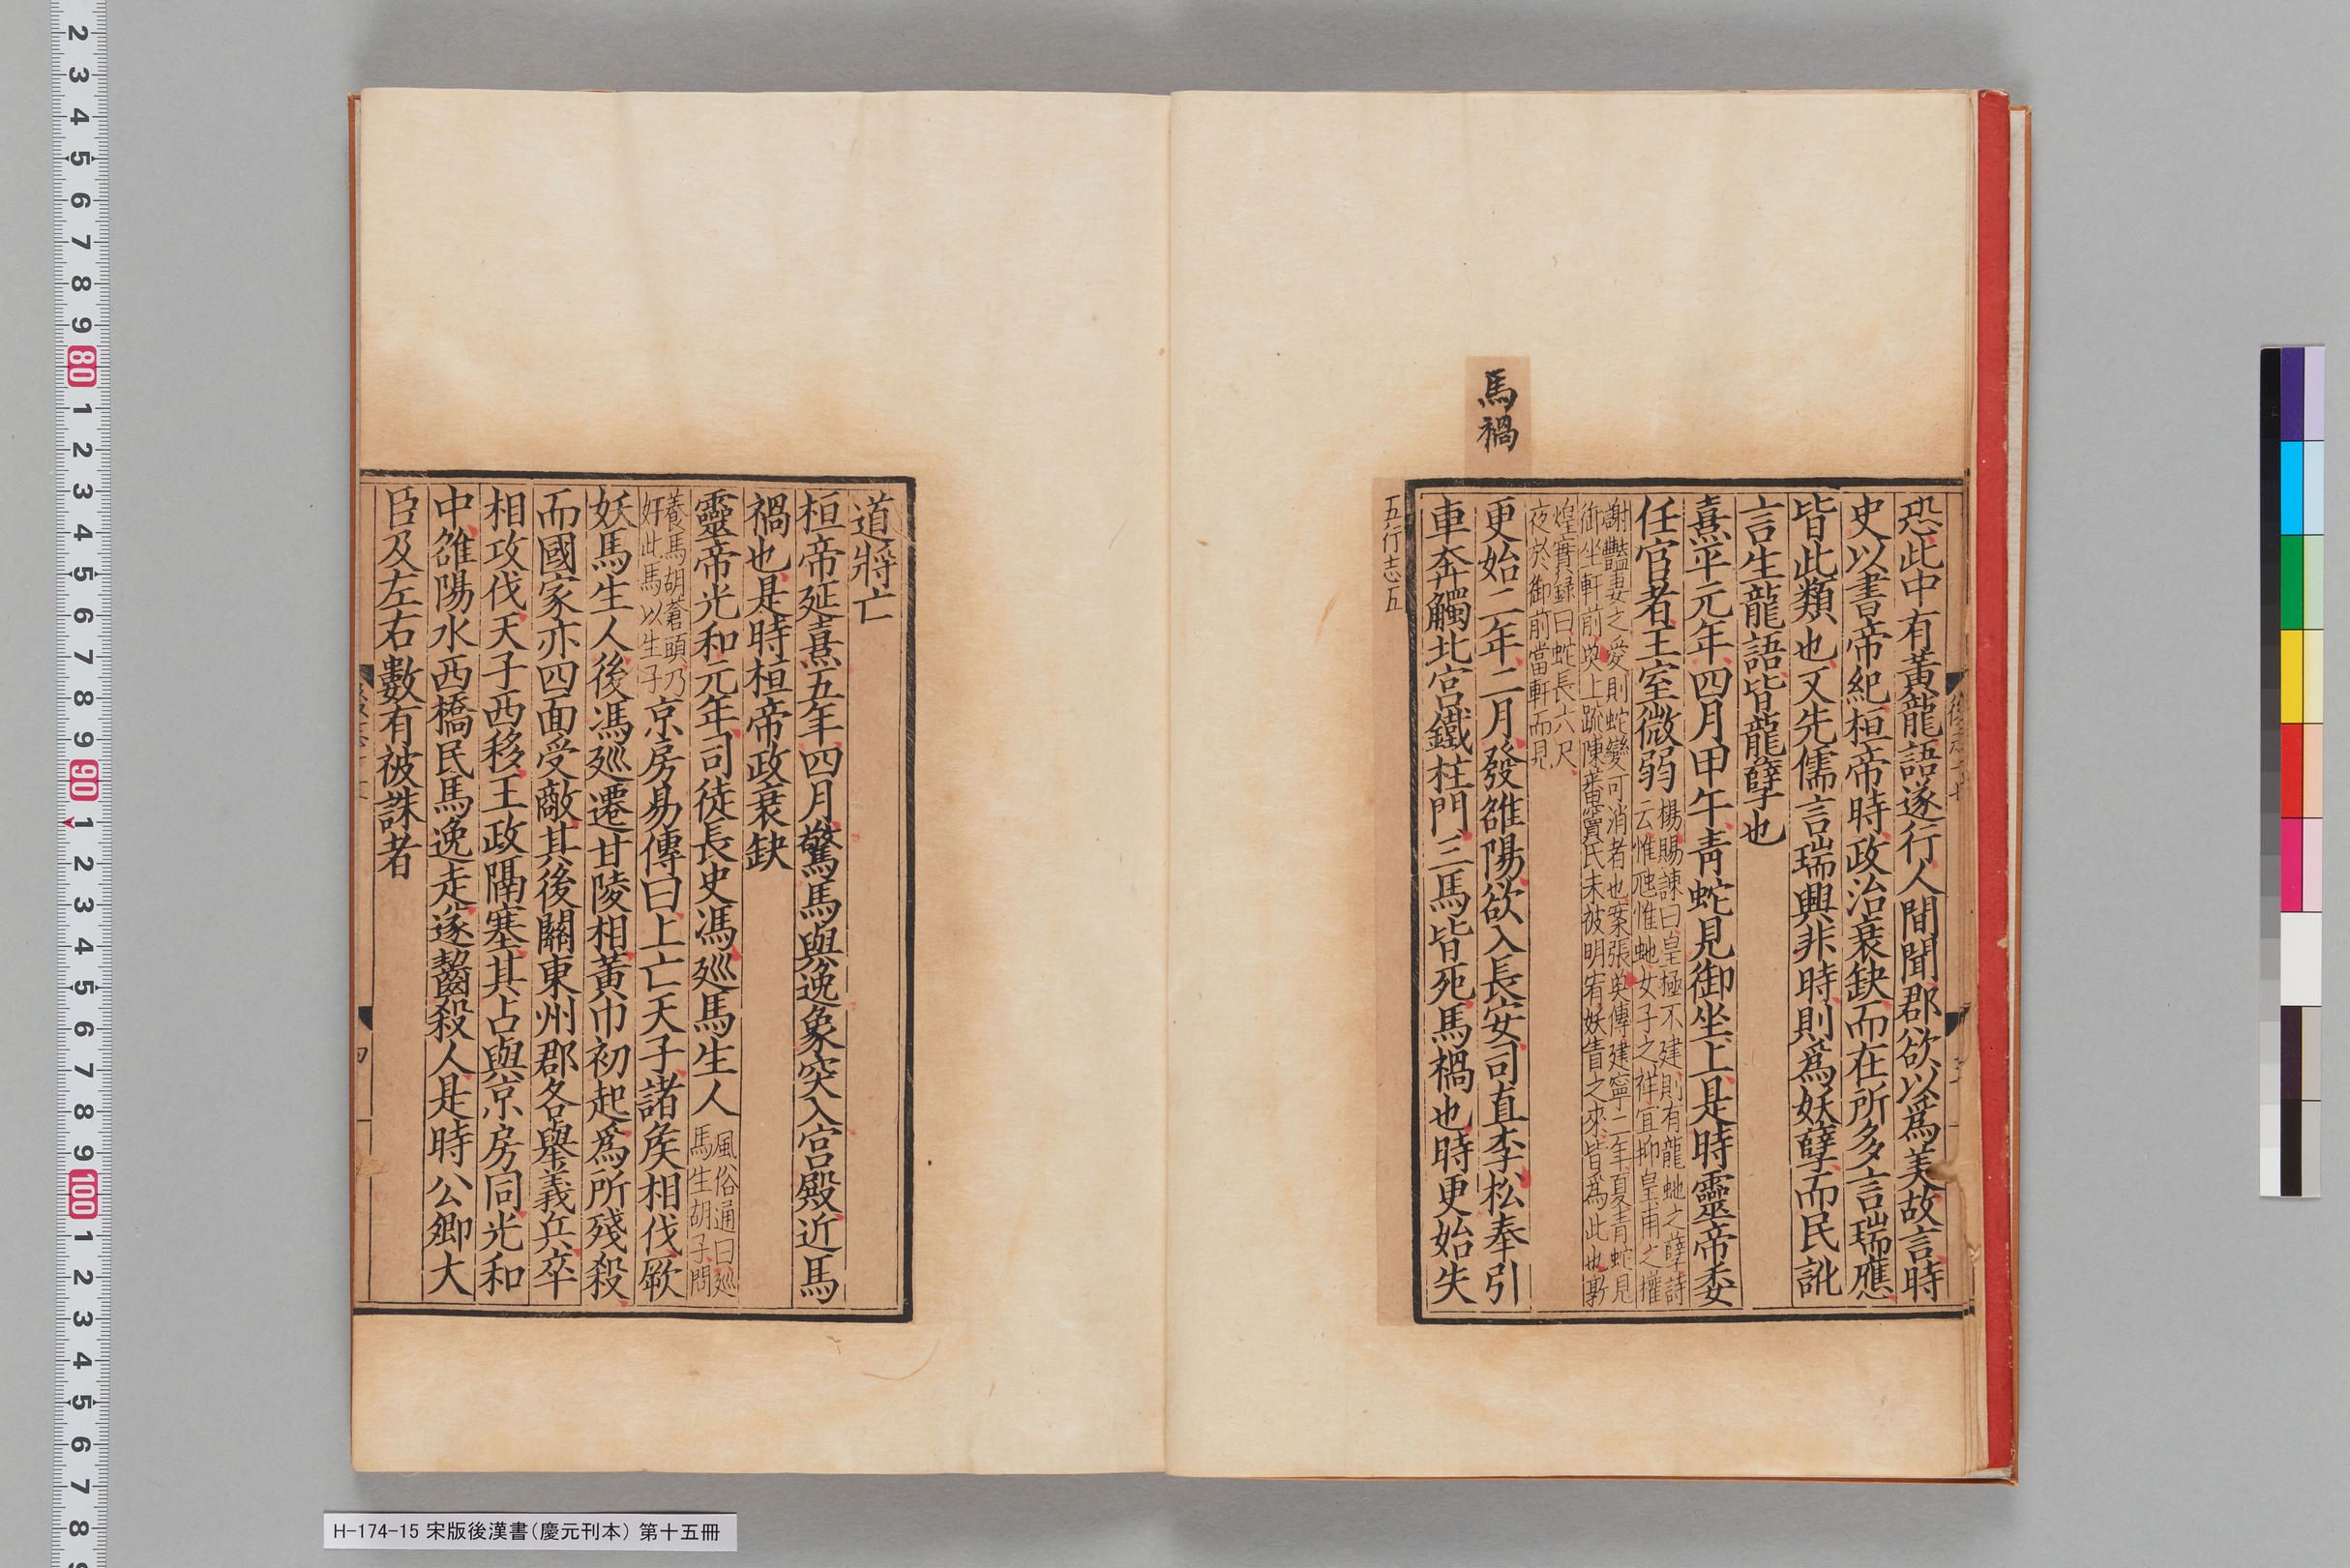 馬禍
恐此中有黃龍語遂行人間聞郡欲以爲美故言時
史以書帝紀桓帝時政治衰缺而在所多言瑞應
皆此類也又先儒言瑞興非時則爲妖孽而民訛
言生龍語皆龍孽也
熹平元年四月甲午青蛇見御坐上是時靈帝委
任宦者王室微弱
楊賜諫曰皇極不建則有龍虵之孽詩
云惟虺惟虵女子之祥宜抑皇甫之權
謝豔妻之愛則蛇變可消者也案張奐傳建寧二年夏青蛇見
御坐軒前奐上疏陳蕃竇氏未被明宥妖眚之來皆爲此也敦
煌實録曰蛇長六尺
夜於御前當軒而見
更始二年二月發雒陽欲入長安司直李松奉引
車奔觸北宮鐵柱門三馬皆死馬禍也時更始失
五行志五
道將亡
桓帝延熹五年四月驚馬與逸象突入宮殿近馬
禍也是時桓帝政衰缺
靈帝光和元年司徒長史馮巡馬生人
風俗通曰巡
馬生胡子問
養馬胡蒼頭乃
好此馬以生子
京房易傳曰上亡天子諸矦相伐厥
妖馬生人後馮巡遷甘陵相黃巾初起爲所殘殺
而國家亦四面受敵其後關東州郡各舉義兵卒
相攻伐天子西移王政隔塞其占與京房同光和
中雒陽水西橋民馬逸走遂齧殺人是時公卿大
臣及左右數有被誅者
H-174-15 宋版後漢書(慶元刊本) 第十五冊
2
3
4
5
6
7
8
9
80
1
2
3
4
5
6
7
8
9
90
1
2
3
4
5
6
7
8
9
100
1
2
3
4
5
6
7
8